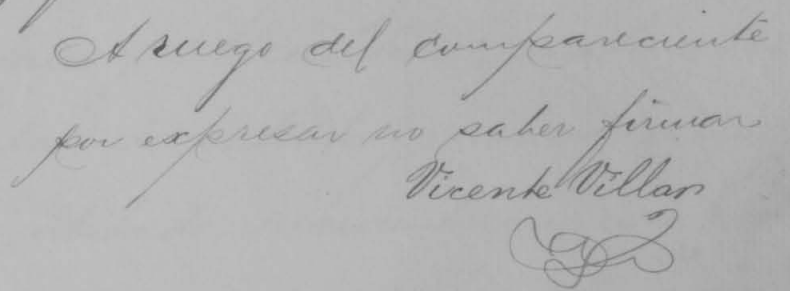 A ruego del compareciente
por expresar no saber firmar
Vicente Villar